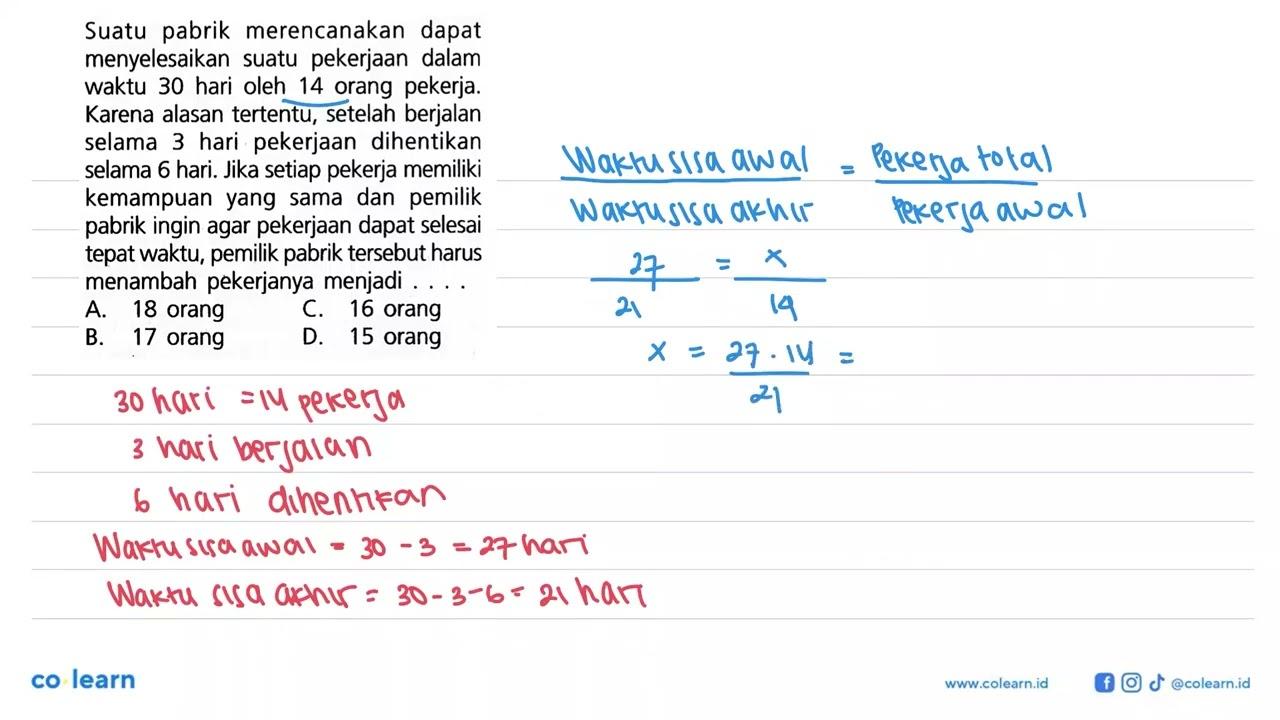 Suatu pabrik merencanakan dapat
menyelesaikan suatu pekerjaan dalam
waktu 30 hari oleh 14 orang pekerja.
Karena alasan tertentu, setelah berjalan
selama 3 hari pekerjaan dihentikan
selama 6 hari. Jika setiap pekerja memiliki
kemampuan yang sama dan pemilik
pabrik ingin agar pekerjaan dapat selesai
tepat waktu, pemilik pabrik tersebut harus
menambah pekerjanya menjadi . . . .
A. 18 orang C. 16 orang
B. 17 orang D. 15 orang
30 hari = 14 pekerja
3 hari berjalan
6 hari dihentikan
Waktu sisa awal = 30 - 3 = 27 hari
Waktu sisa akhir = 30 - 3 - 6 = 21 hari
Waktu sisa awal = Pekerja total
Waktu sisa akhir Pekerja awal
27 = x
21 14
x = 27 . 14 =
21
co learn
www.colearn.id @colearn.id